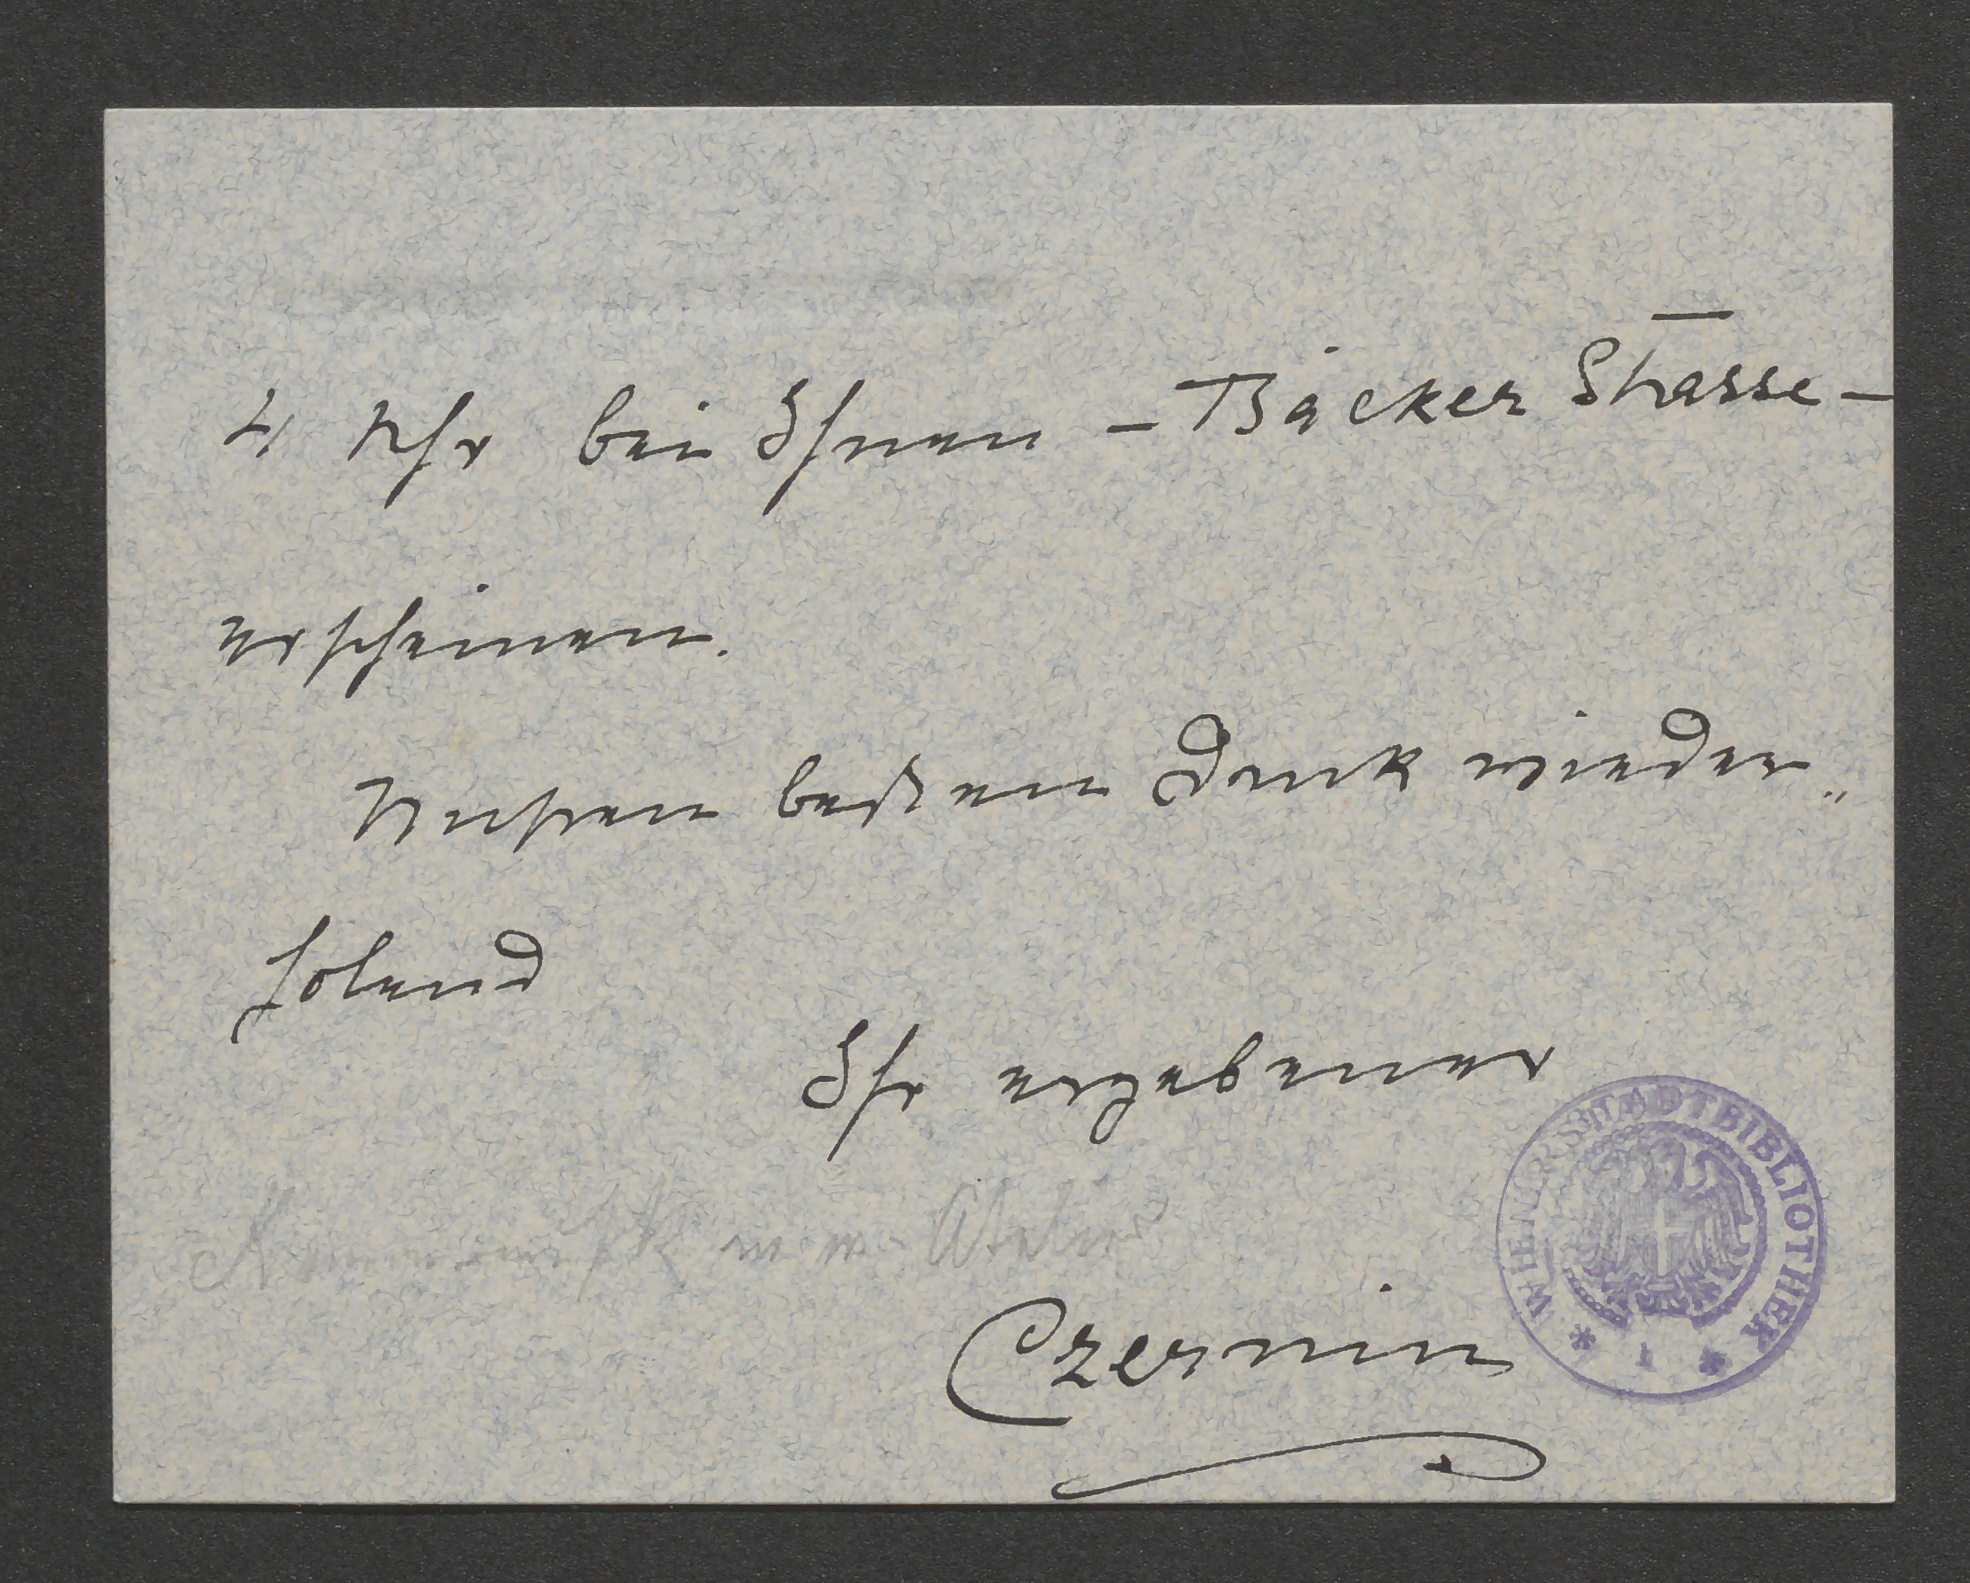 4 Uhr bei Ihnen – Bäcker Strasse –
erscheinen.
Meinen besten Dank wieder„
holend
Ihr ergebener
Atelier
Czernin
WIENER STADTBIBLIOTHEK
* 1 *